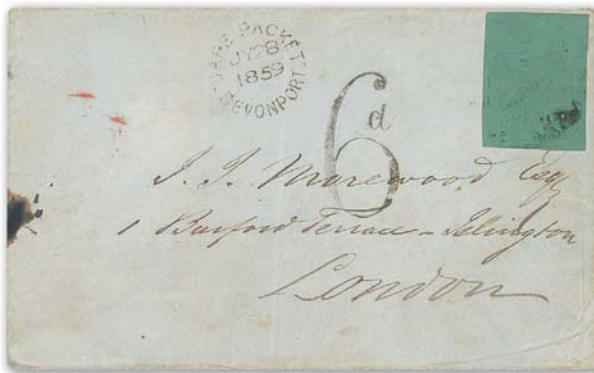 CAPE PACKET
JY 28
1859
DEVONPORT
6d
J. J. Morewood Esq
1 Burford Terrace - Islington
London